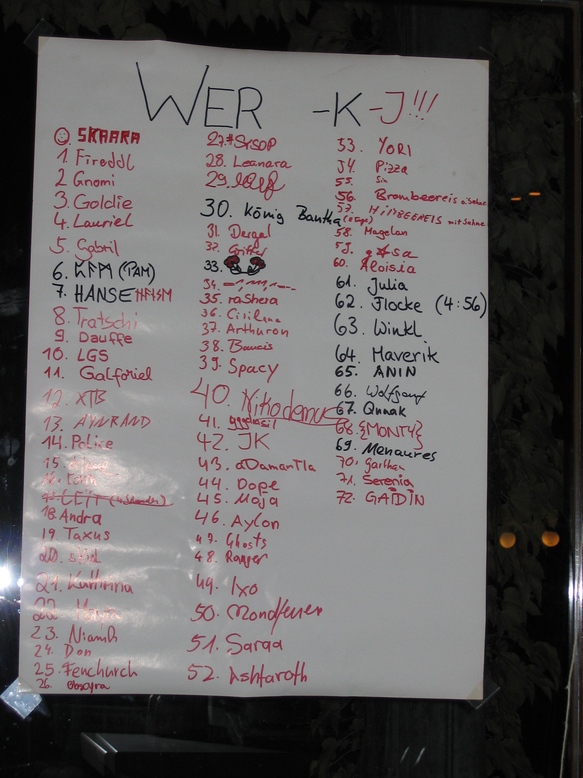 WER -K-J!!!
0 SKAARA
1. Fireddl
2 Gnomi
3 Goldie
4. Lauriel
5. Gabril
6. (PAM)
7. HANSE
8. Tratschi
9. Dauffe
10. LGS
11. Galforiel
12. XTB
13. AYNRAND
14. Police
15.
16.
17. LEIT
18. Andra
19. Taxus
20.
21. Kathrina
22.
23. Niamh
24. Don
25. Fenchurch
26.
27.
28. Leanara
29.
30. König Bantha
31. Dergel
32.
33.
34.
35. raShera
36.
37. Arthuron
38. Baucis
39. Spacy
40. Nikodemus
41. yggdrasil
42. JK
43. aDamanTla
44. Dope
45. Maja
46. Aylon
47. Ghosts
48. Ranger
49. Ixo
50. Mondfeuer
51. Saraa
52. Ashtaroth
53. YORI
54. Pizza
55.
56. Brombeereis
57. HIMBEEREIS mit Sahne
58. Magelan
59.
60. Aloisia
61. Julia
62. Flocke (4:56)
63. Winkl
64. Maverik
65. ANIN
66. Wolfgang
67. Quaak
68. {MONTY}
69. Menaures
70.
71. Serenia
72. GAIDIN